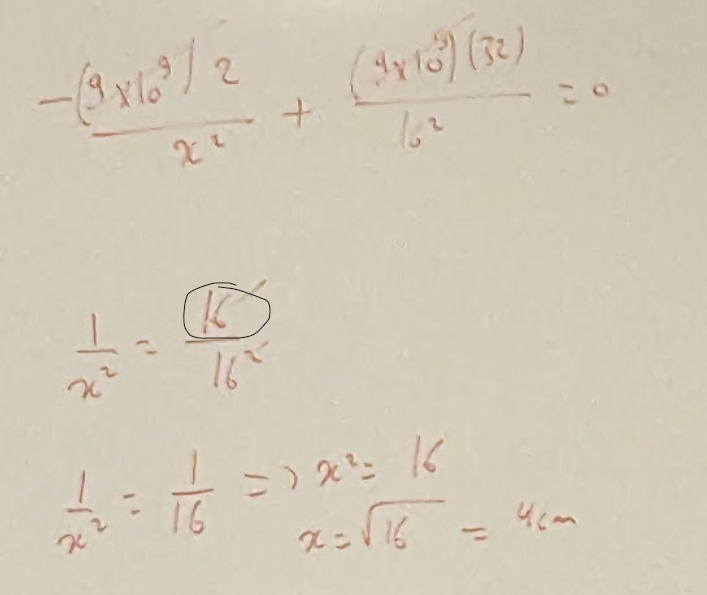 -(9x10^9)2/x^2 + (9x10^9)(32)/16^2 = 0
1/x^2 = 16/16^2
1/x^2 = 1/16 => x^2 = 16
x = √16 = 4cm